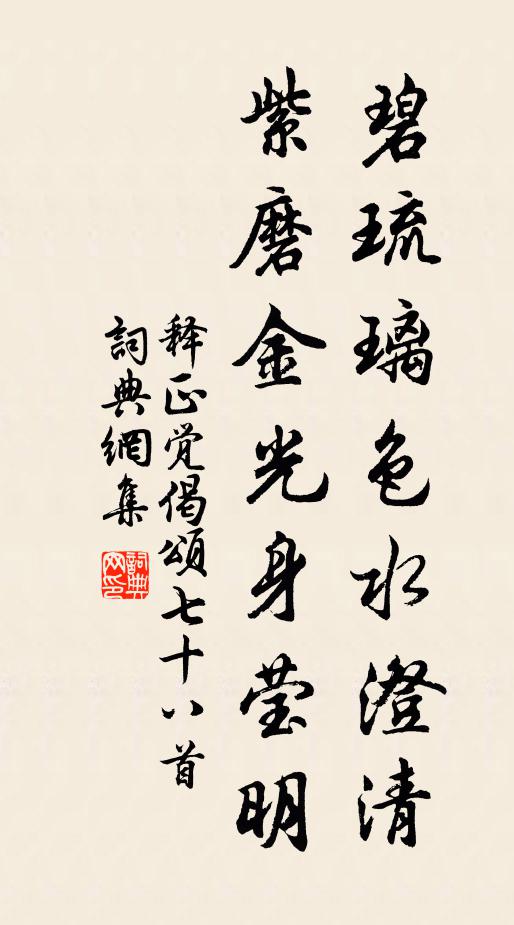 碧琉璃色水澄清
紫磨金光身莹明
释正觉偈頌七十八首
詞典網集
詞典网印